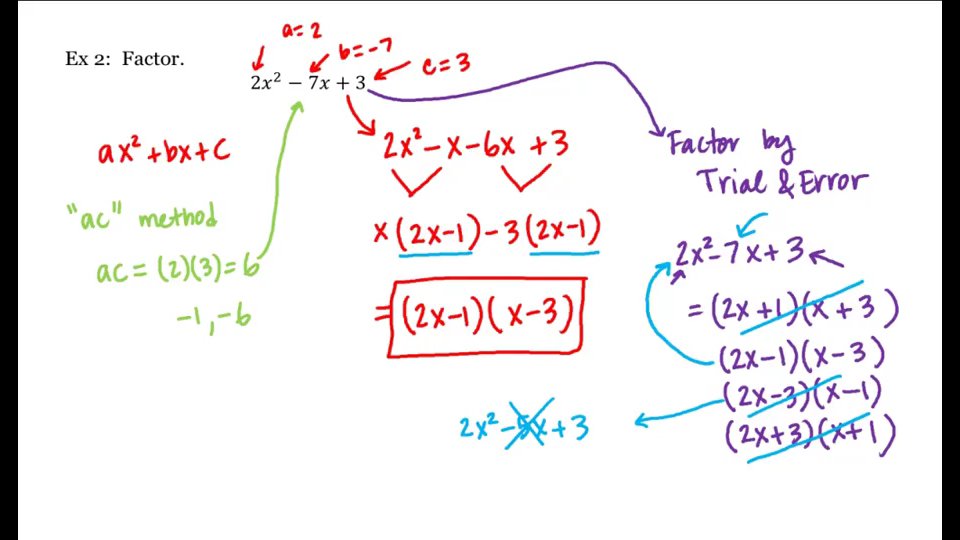 Ex 2: Factor.
a=2
b=-7
c=3
2x² − 7x + 3
ax²+bx+c
"ac" method
ac = (2)(3)=6
-1,-6
2x²-x-6x+3
x(2x-1)-3(2x-1)
=(2x-1)(x-3)
Factor by
Trial & Error
2x²-7x+3
=(2x+1)(x+3)
(2x-1)(x-3)
(2x-3)(x-1)
(2x+3)(x+1)
2x²-5x+3